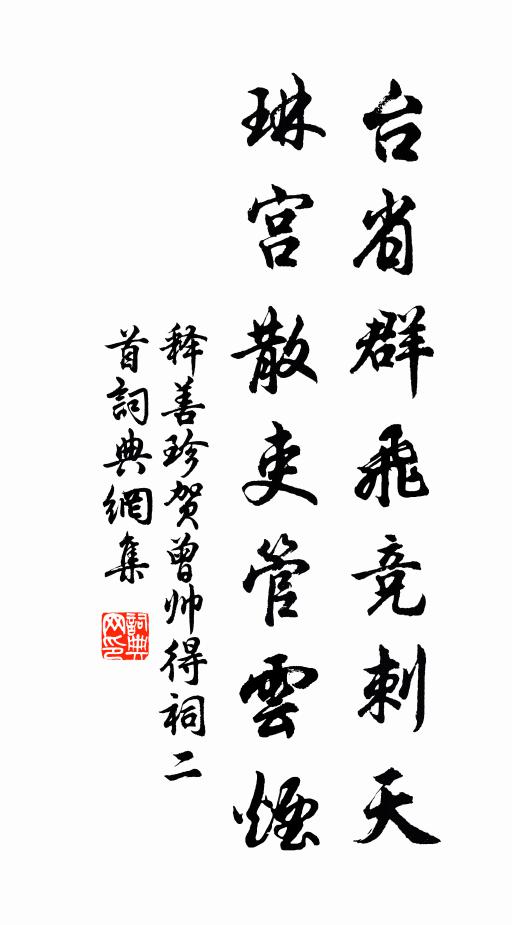 台省群飛竞刺天
琳宫散吏管雲煙
释善珍贺曾帅得祠二
首詞典網集
詞典网印